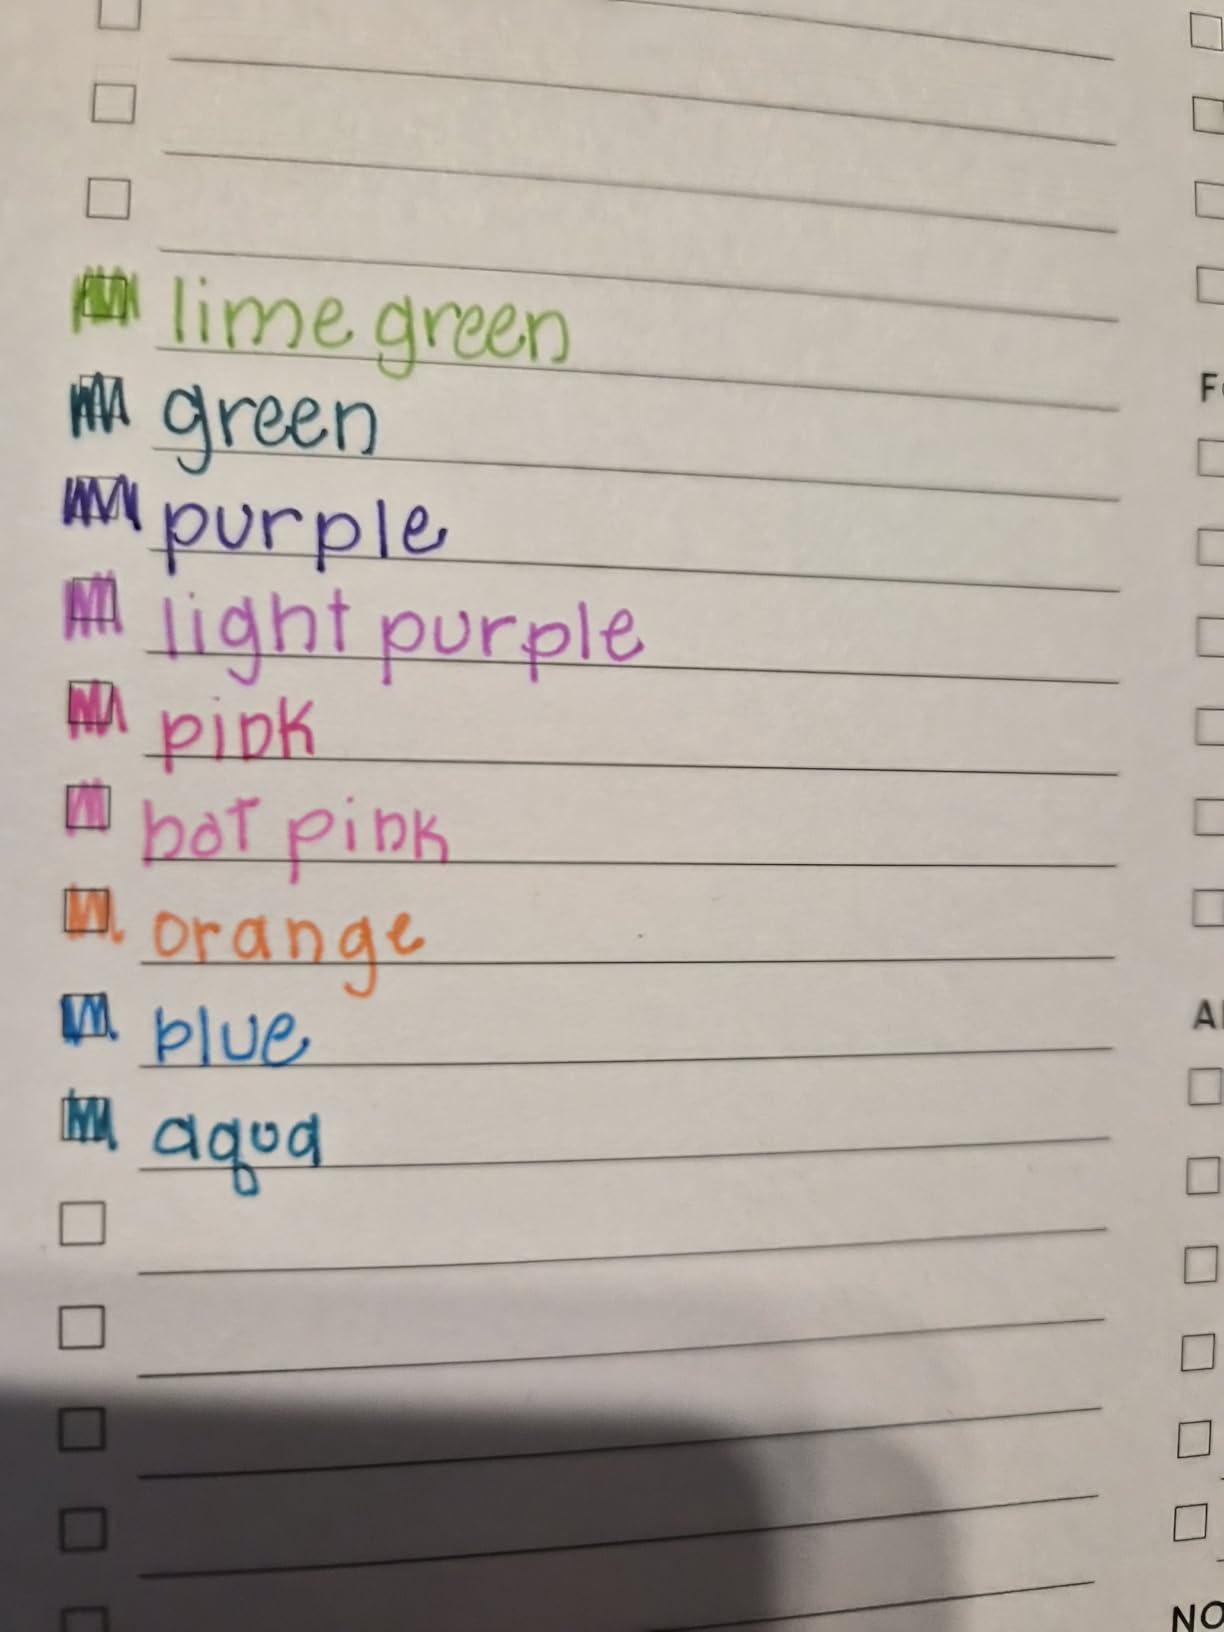 lime green
green
purple
light purple
pink
hot pink
orange
blue
aqua
NO